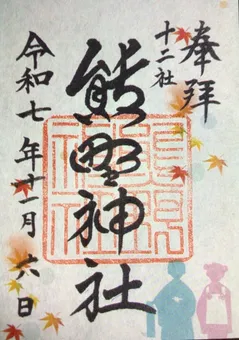 奉拝
十二社
熊野神社
令和七年十一月六日